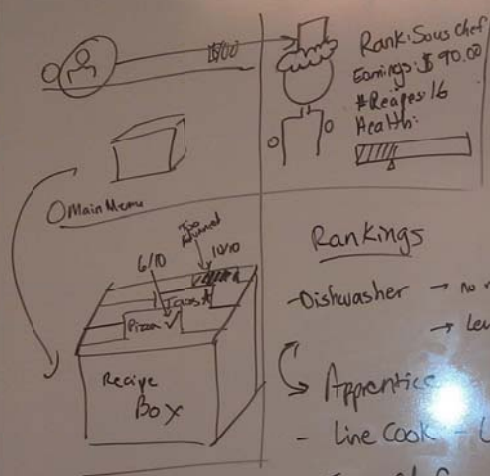 Rank: Sous Chef
Earnings: $90.00
# Recipes: 16
Health:
Main Menu
Too
Advanced
6/10
10/10
Pizza ✓
Recipe
Box
Rankings
- Dishwasher → no
→
Apprentice
- Line Cook -